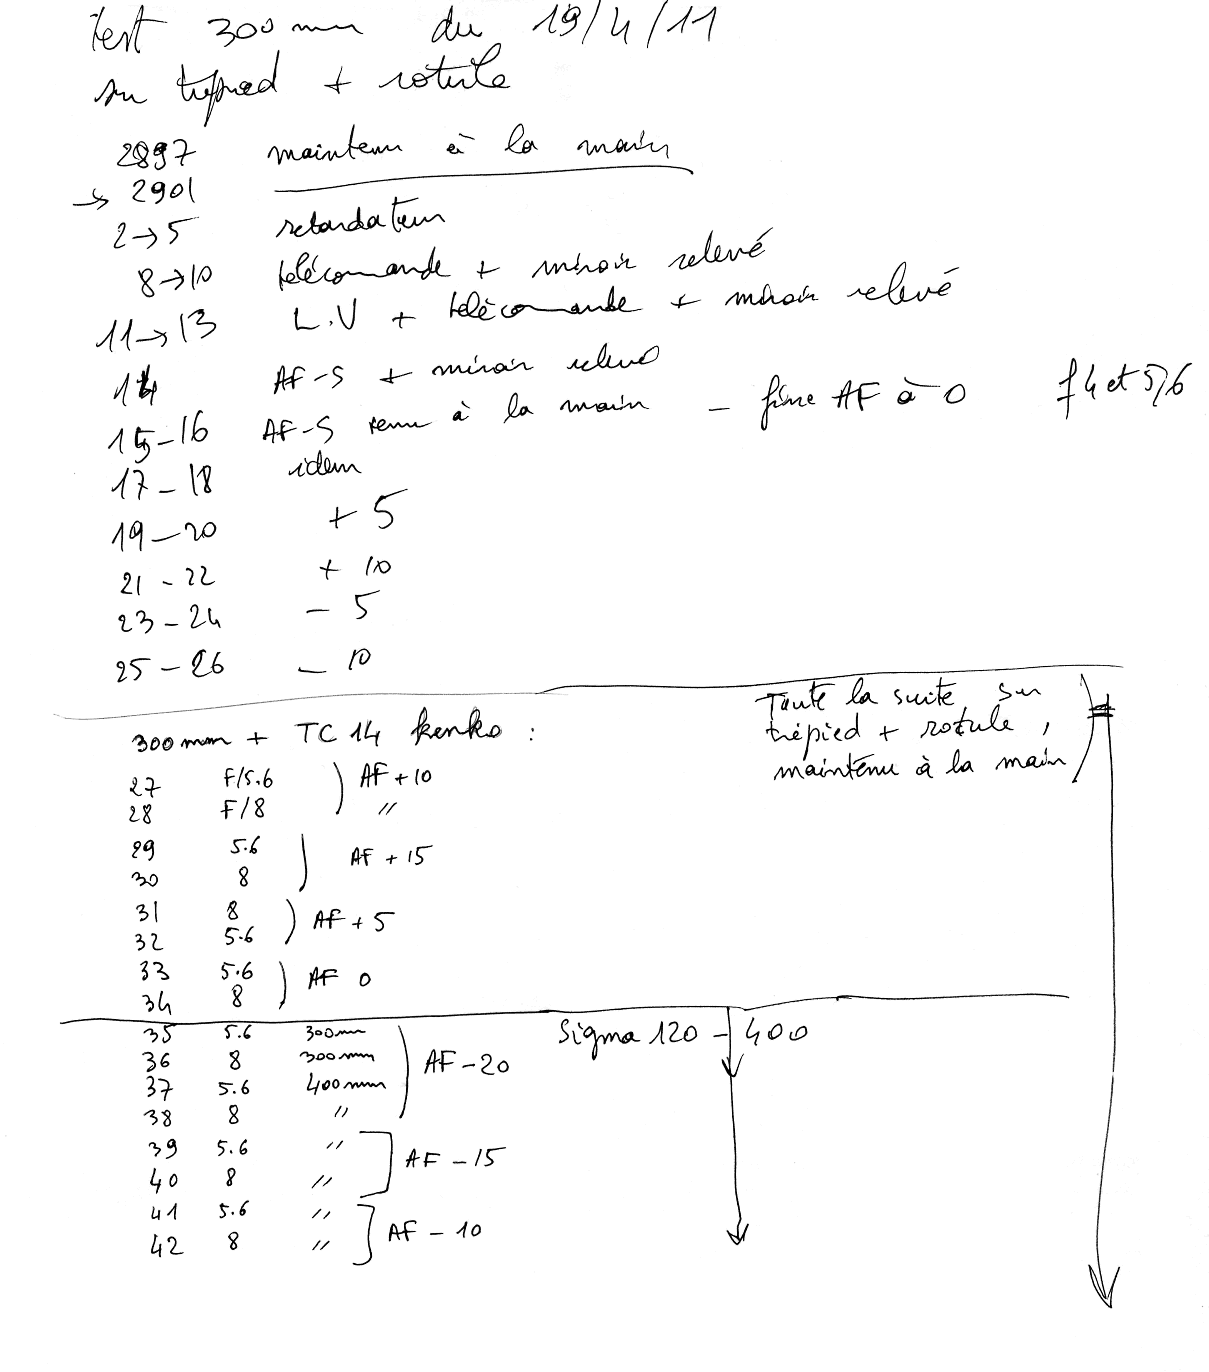 test 300 mm du 19/4/11
sur trépied + rotule
2897 maintenu à la main
→ 2901
2→5 retardateur
8→10 télécomande + miroir relevé
11→13 L.V + télécomande + miroir relevé
14 AF-S + miroir relevé
15-16 AF-S tenu à la main - fine AF à 0 f4 et 5,6
17-18 idem
19-20 + 5
21-22 + 10
23-24 - 5
25-26 - 10
Toute la suite sur
trépied + rotule,
maintenu à la main
300mm + TC 14 kenko :
27 F/5.6 AF+10
28 F/8 "
29 5.6 AF + 15
30 8
31 8 AF + 5
32 5.6
33 5.6 AF 0
34 8
Sigma 120 - 400
35 5.6 300mm AF-20
36 8 300mm
37 5.6 400mm
38 8 "
39 5.6 " AF - 15
40 8 "
41 5.6 " AF - 10
42 8 "